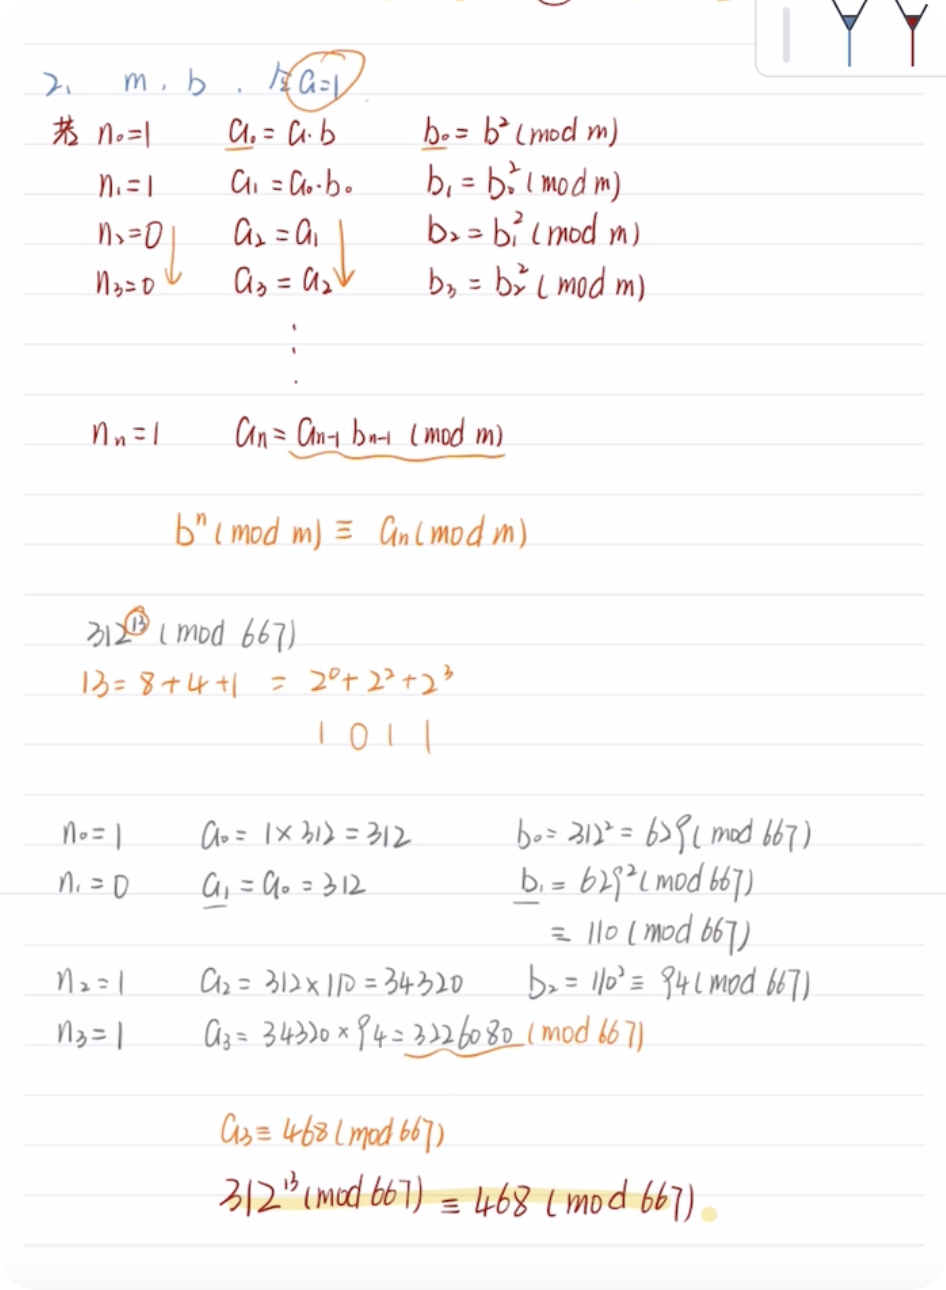 2. m, b. 令a=1
若 n₀=1 a₀=a·b b₀=b²(mod m)
n₁=1 a₁=a₀·b₀ b₁=b₀²(mod m)
n₂=0 a₂=a₁ b₂=b₁²(mod m)
n₃=0 a₃=a₂ b₃=b₂²(mod m)
⋮
nₙ=1 aₙ=aₙ₋₁ bₙ₋₁ (mod m)
bⁿ(mod m)≡ aₙ(mod m)
312¹³(mod 667)
13=8+4+1 = 2⁰+2²+2³
1 0 1 1
n₀=1 a₀=1×312=312 b₀=312²=629(mod 667)
n₁=0 a₁=a₀=312 b₁=629²(mod 667)
≡110(mod 667)
n₂=1 a₂=312×110=34320 b₂=110²≡94(mod 667)
n₃=1 a₃=34320×94=3226080(mod 667)
a₃≡468(mod 667)
312¹³(mod 667)≡468(mod 667).